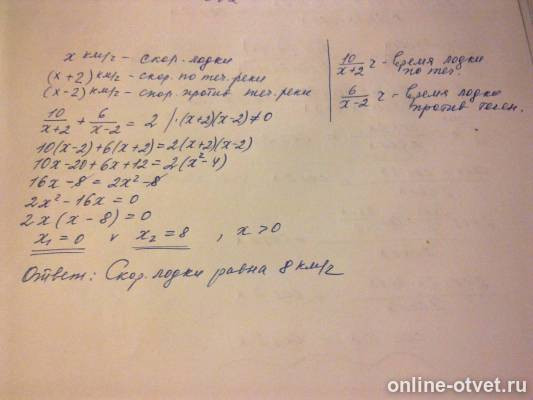 x км/ч - скор. лодки
(x+2) км/ч - скор. по теч. реки
(x-2) км/ч - скор. против теч. реки
10/(x+2) + 6/(x-2) = 2 /·(x+2)(x-2)≠0
10(x-2)+6(x+2)=2(x+2)(x-2)
10x-20+6x+12=2(x²-4)
16x-8=2x²-8
2x²-16x=0
2x(x-8)=0
x₁=0 v x₂=8 , x>0
Ответ: Скор. лодки равна 8 км/ч
10/(x+2) ч - время лодки
по теч.
6/(x-2) ч - время лодки
против течен.
online-otvet.ru